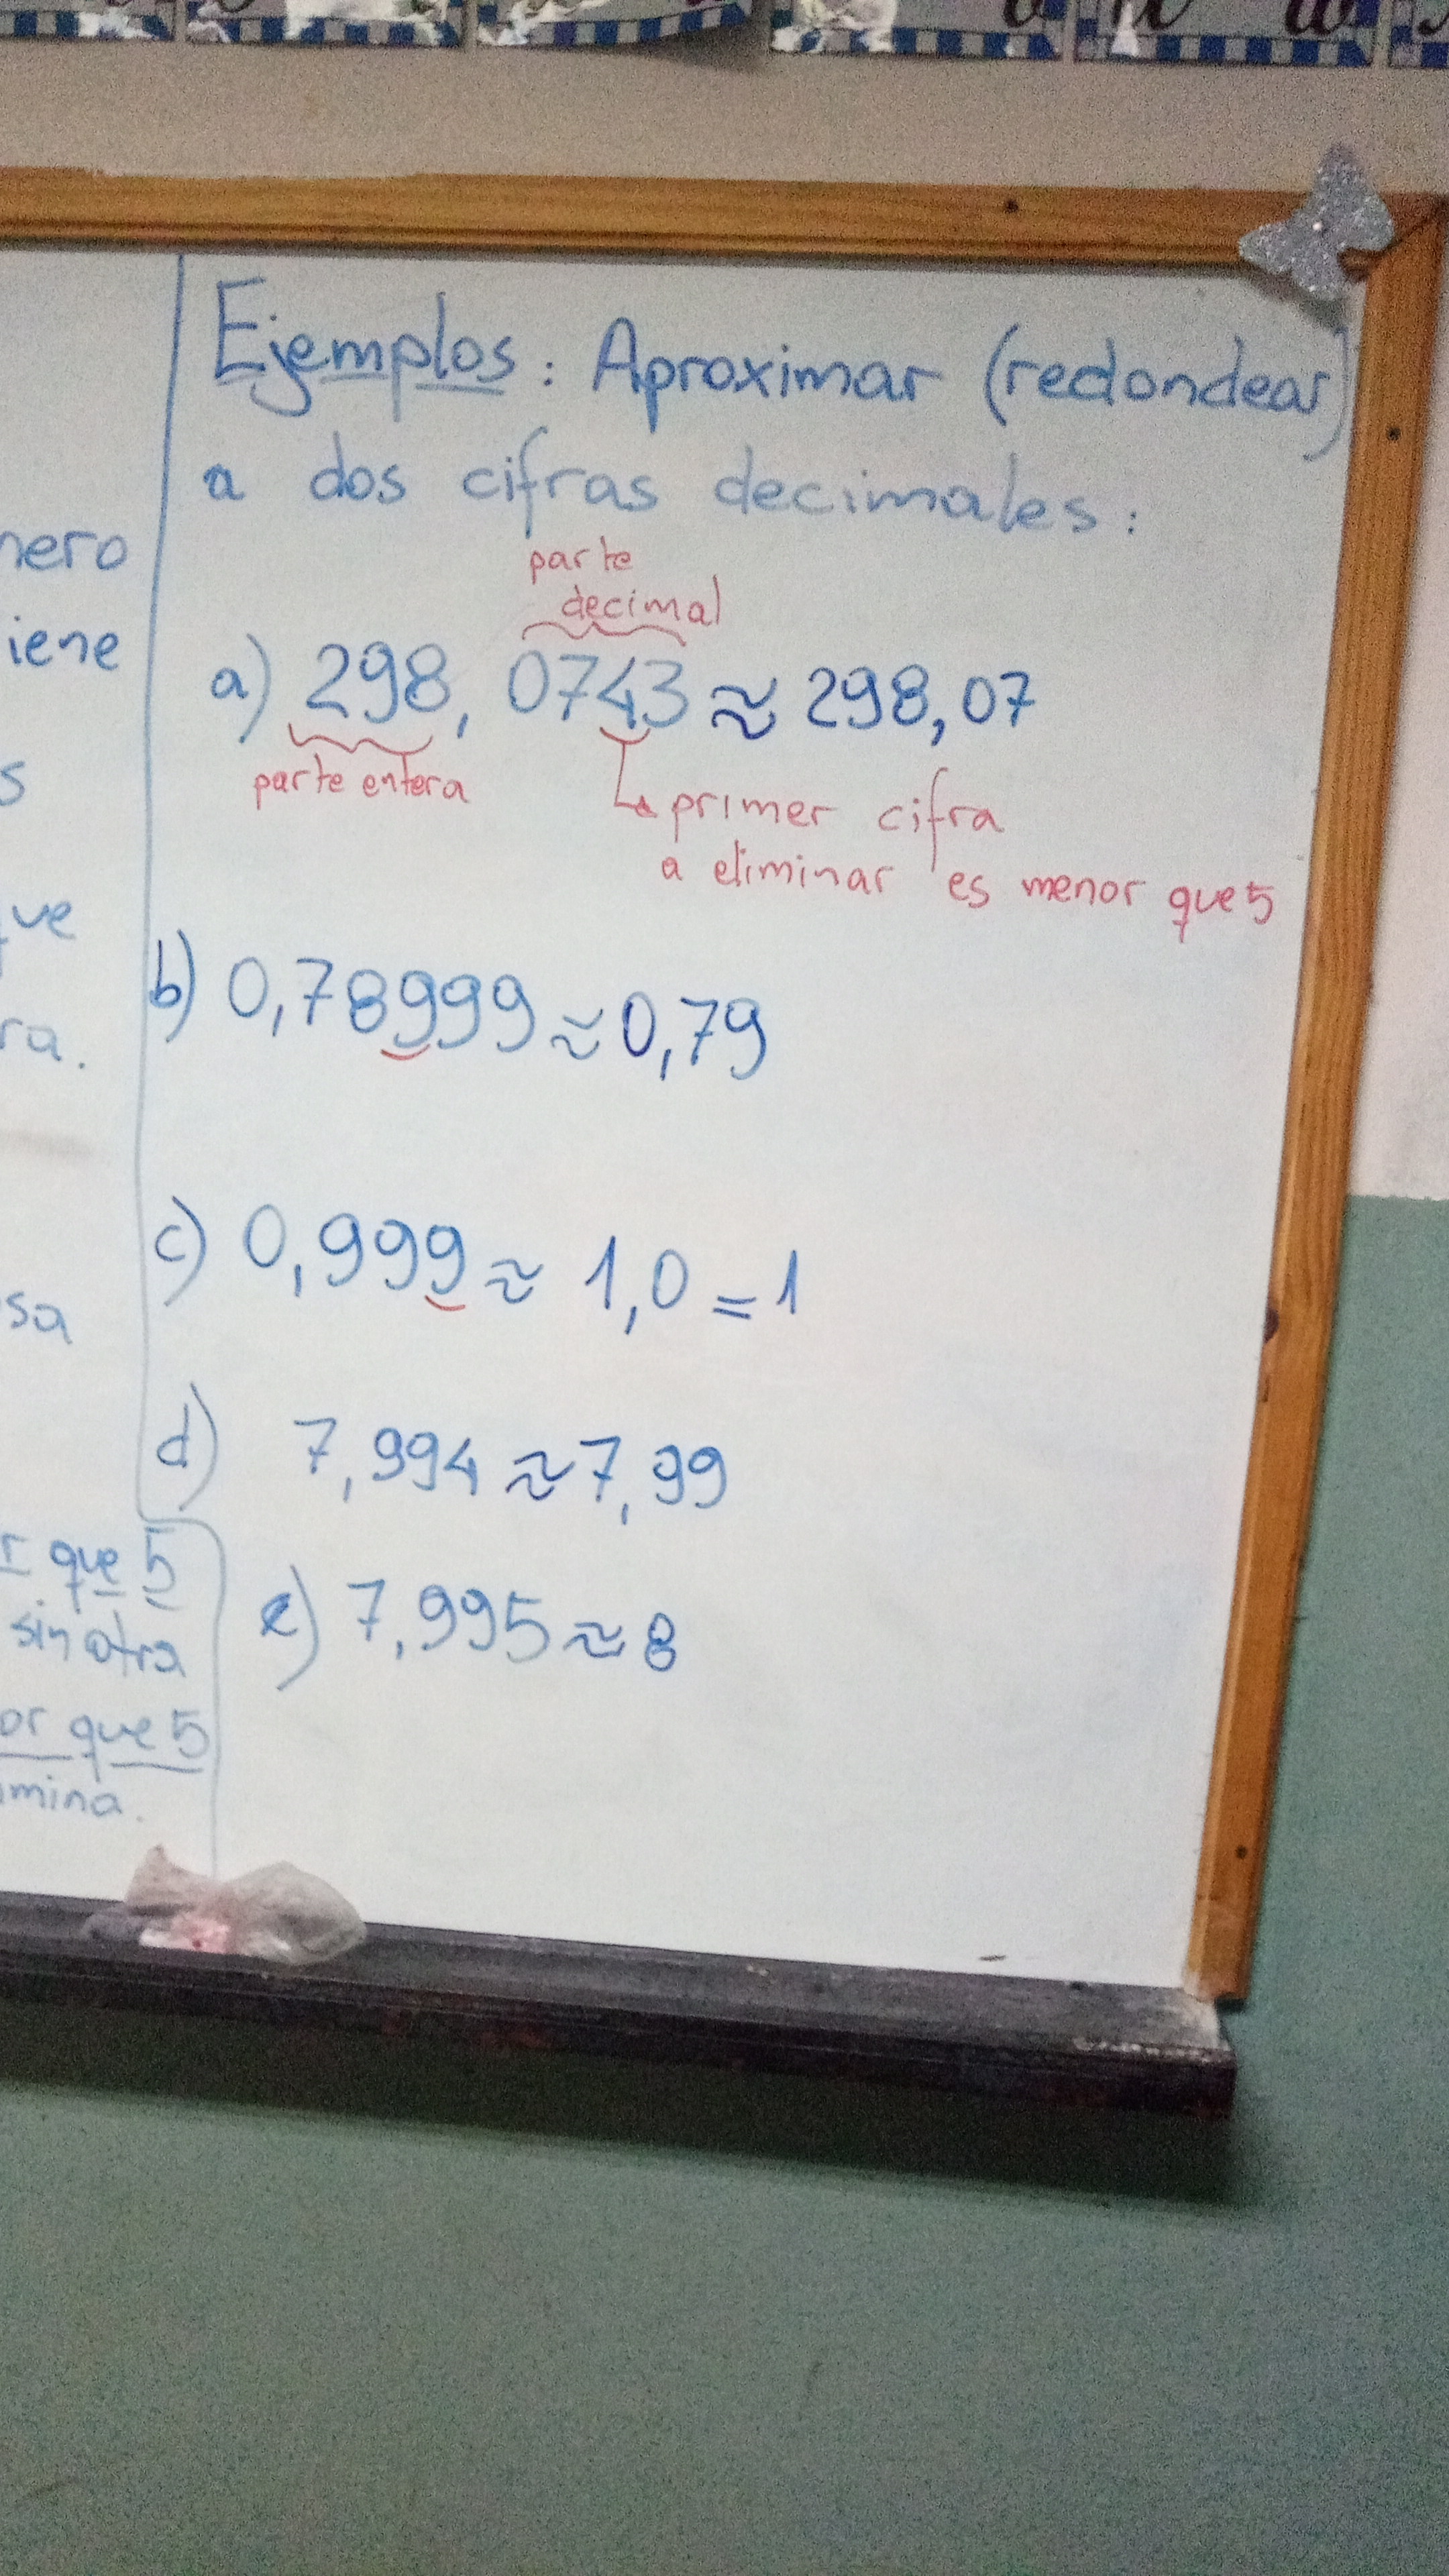 nero
iene
s
que
ra.
sa
r que 5
sin otra
or que 5
mina.
Ejemplos: Aproximar (redondear)
a dos cifras decimales:
parte
decimal
a) 298, 0743 ≈ 298,07
parte entera
primer cifra
a eliminar es menor que 5
b) 0,78999 ≈ 0,79
c) 0,999 ≈ 1,0 = 1
d) 7,994 ≈ 7,99
e) 7,995 ≈ 8